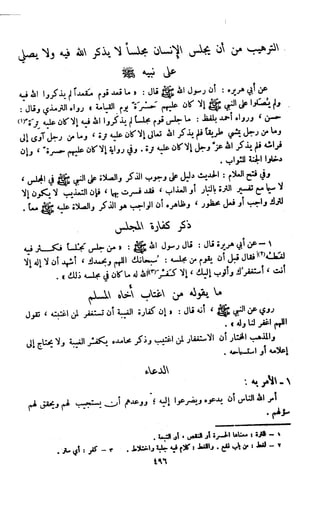 الترهيب من أن يجلس الإنسان مجلساً لا يذكر الله فيه ولا يصلي
على نبيه ﷺ
عن أبي هريرة: أن رسول الله ﷺ قال: « ما قعد قوم مقعداً لم يذكروا الله فيه
ولم يصلوا على النبي ﷺ إلا كان عليهم حسرة يوم القيامة » رواه الترمذي وقال:
حسن، ورواه أحمد بلفظ: ما جلس قوم مجلساً لم يذكروا الله فيه إلا كان عليهم ترة(١)
وما من رجل يمشي طريقاً فلم يذكر الله تعالى إلا كان عليه ترة، وما من رجل آوى إلى
فراشه فلم يذكر الله عز وجل إلا كان عليه ترة. وفي رواية إلا كان عليهم حسرة، وإن
دخلوا الجنة للثواب.
وفي فتح العلام: الحديث دليل على وجوب الذكر والصلاة على النبي ﷺ في المجلس،
لا سيما مع تفسير الترة بالنار أو العذاب، فقد فسرت بها، فإن التعذيب لا يكون إلا
لترك واجب أو فعل محظور، وظاهره أن الواجب هو الذكر والصلاة عليه ﷺ معاً.
ذكر كفارة المجلس
١ - عن أبي هريرة قال: قال رسول الله ﷺ: « من جلس مجلساً فكثر فيه
لغطه(٢) فقال قبل أن يقوم من مجلسه: سبحانك اللهم وبحمدك، أشهد أن لا إله إلا
أنت، أستغفرك وأتوب إليك، إلا كفر(٣) الله له ما كان في مجلسه ذلك ».
ما يقوله من اغتاب أخاه المسلم
روي عن النبي ﷺ، أنه قال: « إن كفارة الغيبة أن تستغفر لمن اغتبته، تقول
اللهم اغفر لنا وله ».
والمذهب المختار أن الاستغفار لمن اغتيب وذكر محامده يكفر الغيبة ولا يحتاج إلى
إعلامه أو استسماحه.
الدعاء
١ - الأمر به:
أمر الله الناس أن يدعوه ويضرعوا إليه؛ ووعدهم أن يستجيب لهم ويحقق لهم
سؤلهم.
١ - الترة: معناها الحسرة أو النقص، أو التبعة.
٢ - لغط: من باب نفع. واللغط: كلام فيه جلبة واختلاط. ٣ - كفر: أي ستر.
٤٩٦